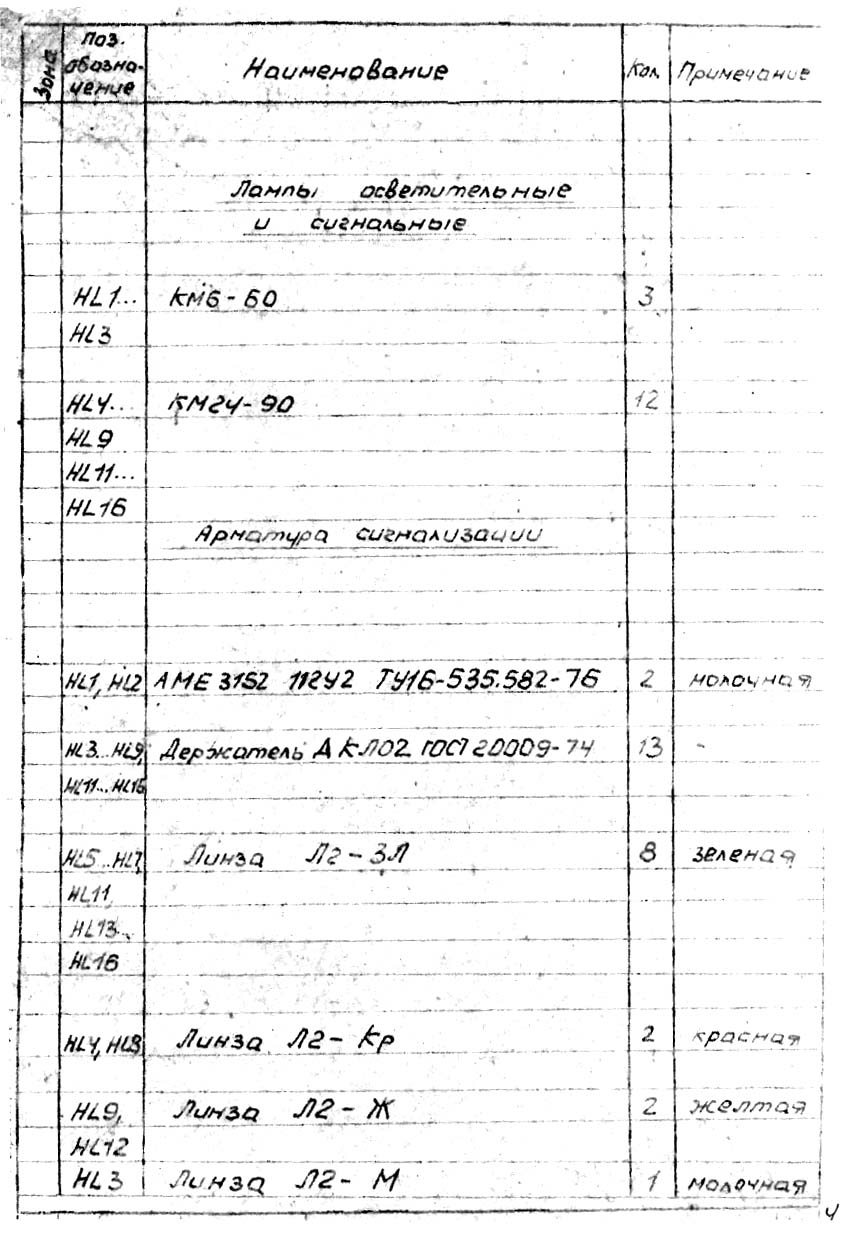 Зона Поз. обозна- чение Наименование Кол. Примечание
Лампы осветительные
и сигнальные
HL1... КМ6-60 3
HL3
HL4... КМ24-90 12
HL9
HL11...
HL16
Арматура сигнализации
HL1, HL2 АМЕ 3152 112У2 ТУ16-535.582-76 2 молочная
HL3...HL9, Держатель ДКЛ02 ГОСТ 20009-74 13 -
HL11...HL16
HL5...HL7, Линза Л2-ЗЛ 8 зеленая
HL11,
HL13...
HL16
HL4, HL8 Линза Л2-Кр 2 красная
HL9, Линза Л2-Ж 2 желтая
HL12
HL3 Линза Л2-М 1 молочная
4